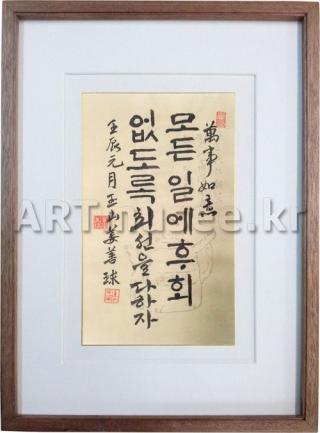 萬事如意
모든 일에 후회
없도록 최선을 다하자
壬辰元月 玉山 姜善球
ARTmusee.kr